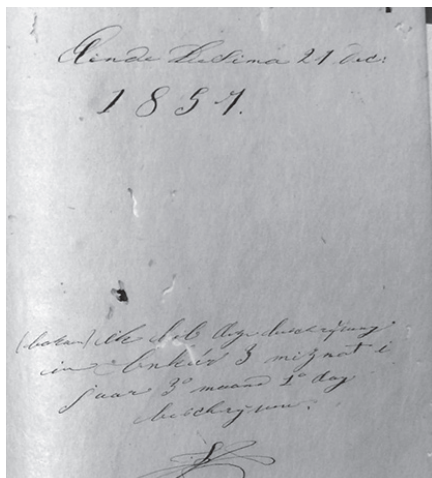 Einde Decima 21 Dec:
1857.
(bakan) Ik heb deze beschrijving
in Ankeis 3 miznot i
jaar 3e maand 1e dag
beschreven.